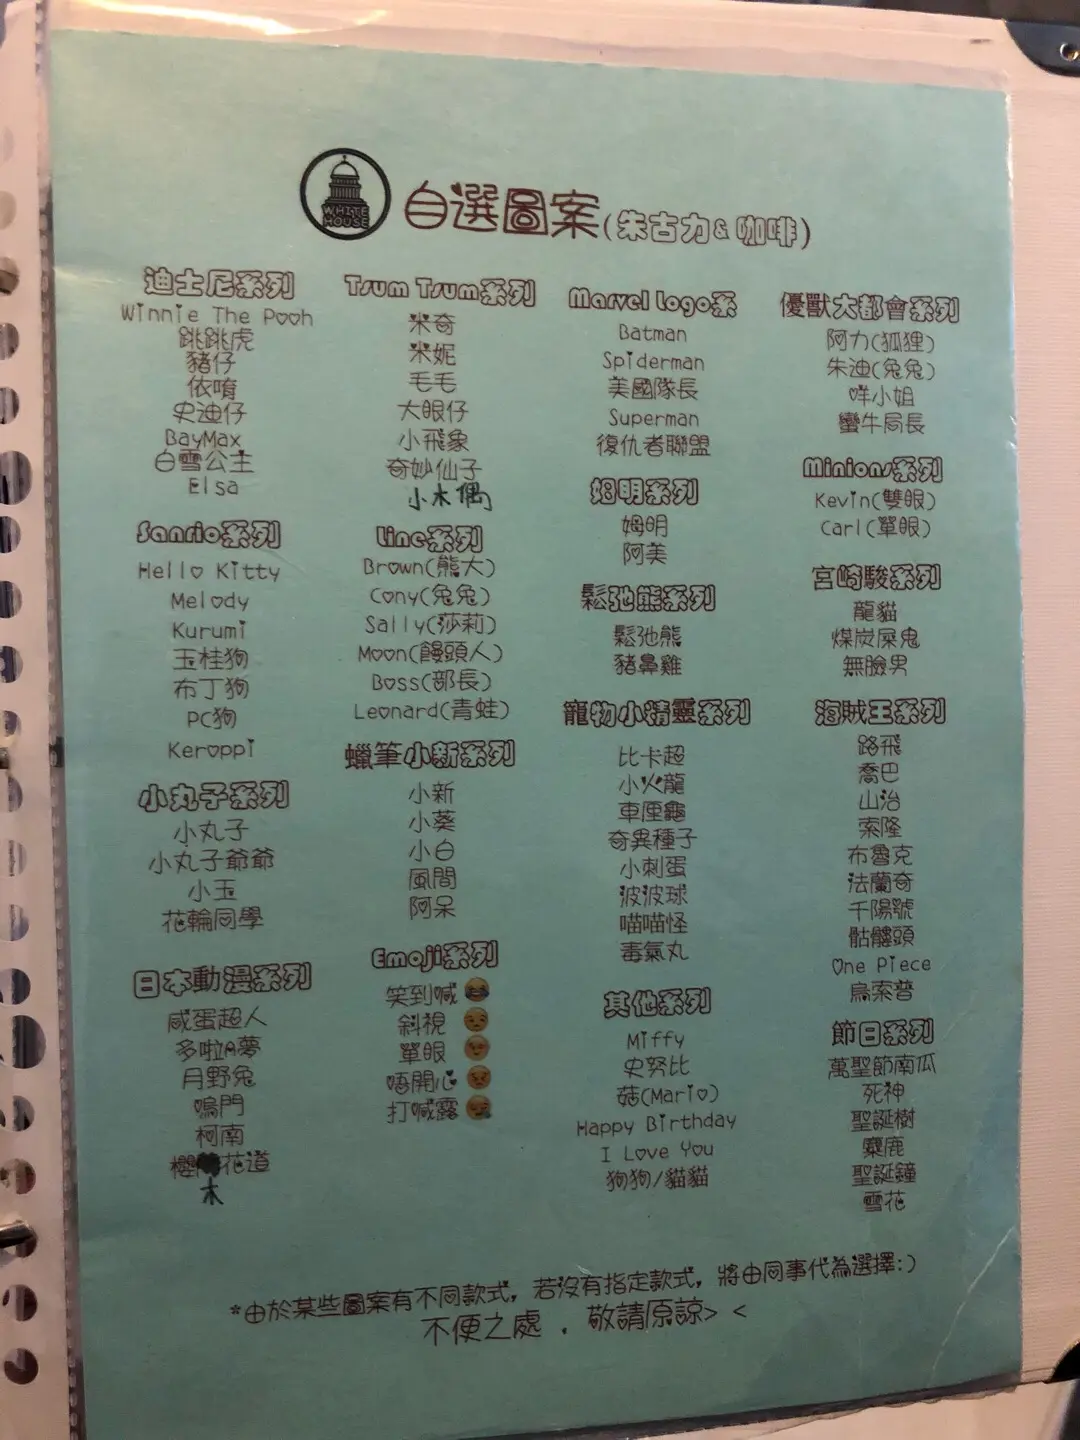 WHITE HOUSE
自選圖案(朱古力&咖啡)
迪士尼系列
Winnie The Pooh
跳跳虎
豬仔
依唷
史迪仔
BayMax
白雪公主
Elsa
Sanrio系列
Hello Kitty
Melody
Kurumi
玉桂狗
布丁狗
PC狗
Keroppi
小丸子系列
小丸子
小丸子爺爺
小玉
花輪同學
日本動漫系列
咸蛋超人
多啦A夢
月野兔
鳴門
柯南
櫻木花道
Tsum Tsum系列
米奇
米妮
毛毛
大眼仔
小飛象
奇妙仙子
小木偶
Line系列
Brown(熊大)
Cony(兔兔)
Sally(莎莉)
Moon(饅頭人)
Boss(部長)
Leonard(青蛙)
蠟筆小新系列
小新
小葵
小白
風間
阿呆
Emoji系列
笑到喊
斜視
單眼
唔開心
打喊露
Marvel Logo系
Batman
Spiderman
美國隊長
Superman
復仇者聯盟
姆明系列
姆明
阿美
鬆弛熊系列
鬆弛熊
豬鼻雞
寵物小精靈系列
比卡超
小火龍
車厘龜
奇異種子
小刺蛋
波波球
喵喵怪
毒氣丸
其他系列
Miffy
史努比
菇(Mario)
Happy Birthday
I Love You
狗狗/貓貓
優獸大都會系列
阿力(狐狸)
朱迪(兔兔)
咩小姐
蠻牛局長
Minions系列
Kevin(雙眼)
Carl(單眼)
宮崎駿系列
龍貓
煤炭屎鬼
無臉男
海賊王系列
路飛
喬巴
山治
索隆
布魯克
法蘭奇
千陽號
骷髏頭
One Piece
烏索普
節日系列
萬聖節南瓜
死神
聖誕樹
麋鹿
聖誕鐘
雪花
*由於某些圖案有不同款式，若沒有指定款式，將由同事代為選擇:)
不便之處，敬請原諒> <